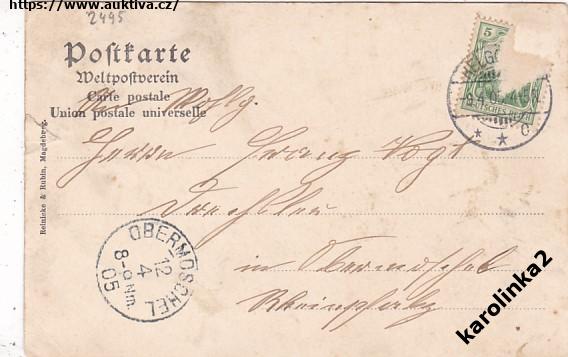 https://www.auktiva.cz/
2495
Postkarte
Weltpostverein
Carte postale
Union postale universelle
Wohlg.
Herrn Franz Vogt
in Obermoschel
Rheinpfalz
Reinicke & Rubin, Magdeburg.
5
DEUTSCHES REICH
OBERMOSCHEL
12
4
8-9 Nm.
05
karolinka2